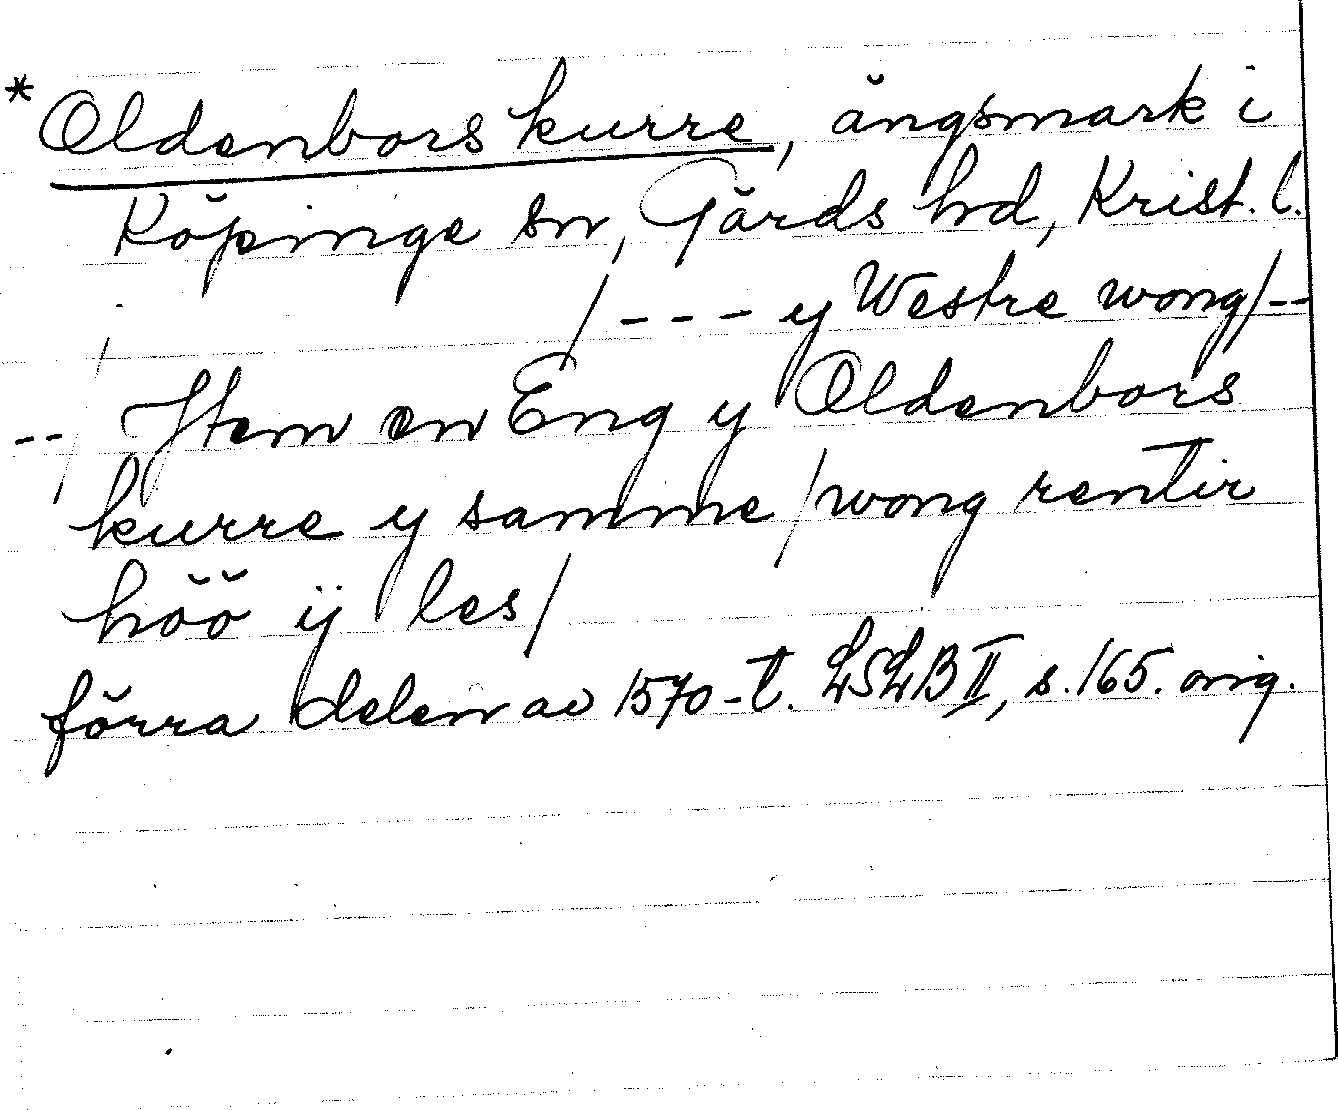 *Oldenbors kurre, ängsmark i
Köpinge sn, Gärds hd, Krist. l.
/ --- y Westre wong/--
--/ Item en Eng y Oldenbors
kurre y samme / wong rentir
höö ij les/
förra delen av 1570-t. LSLB II, s. 165. orig.